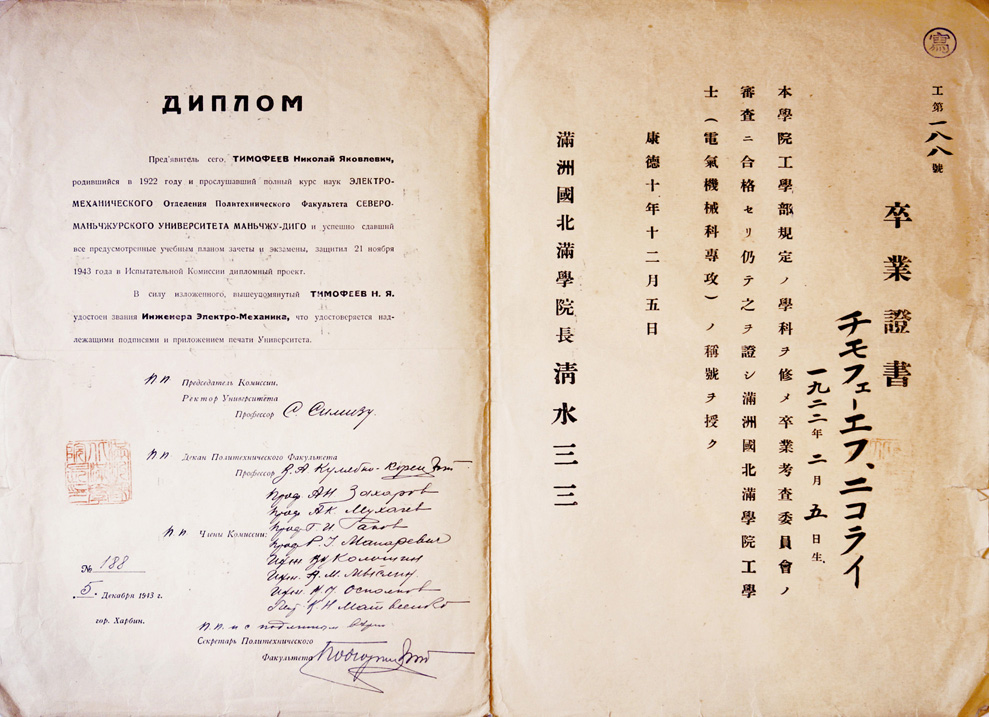 ДИПЛОМ
Пред'явитель сего, ТИМОФЕЕВ Николай Яковлевич,
родившийся в 1922 году и прослушавший полный курс наук ЭЛЕКТРО-
МЕХАНИЧЕСКОГО Отделения Политехнического Факультета СЕВЕРО-
МАНЬЧЖУРСКОГО УНИВЕРСИТЕТА МАНЬЧЖУ-ДИГО и успешно сдавший
все предусмотренные учебным планом зачеты и экзамены, защитил 21 ноября
1943 года в Испытательной Комиссии дипломный проект.
В силу изложенного, вышеупомянутый ТИМОФЕЕВ Н. Я.
удостоен звания Инженера Электро-Механика, что удостоверяется над-
лежащими подписями и приложением печати Университета.
п.п. Председатель Комиссии,
Ректор Университета
Профессор С. Симизу.
п.п. Декан Политехнического Факультета
Профессор В. А. Кулябко-Корец
проф. А Н Захаров
проф. А К Мухачев
проф. Г. И Ганов
п.п. Члены Комиссии:
проф Р. Г. Макаревич
инж А. М. Мыслин
К Н Матвеенко
№ 188
5. Декабря 1943 г.
гор. Харбин.
п.п. и с подлинным верно
Секретарь Политехнического
Факультета
寫
工第一八八號
卒業證書
チモフェーエフ、ニコライ
一九二二年二月五日生
本學院工學部規定ノ學科ヲ修メ卒業考査委員會ノ
審査ニ合格セリ仍テ之ヲ證シ滿洲國北滿學院工學
士(電氣機械科專攻)ノ稱號ヲ授ク
康德十年十二月五日
滿洲國北滿學院長 清水三三